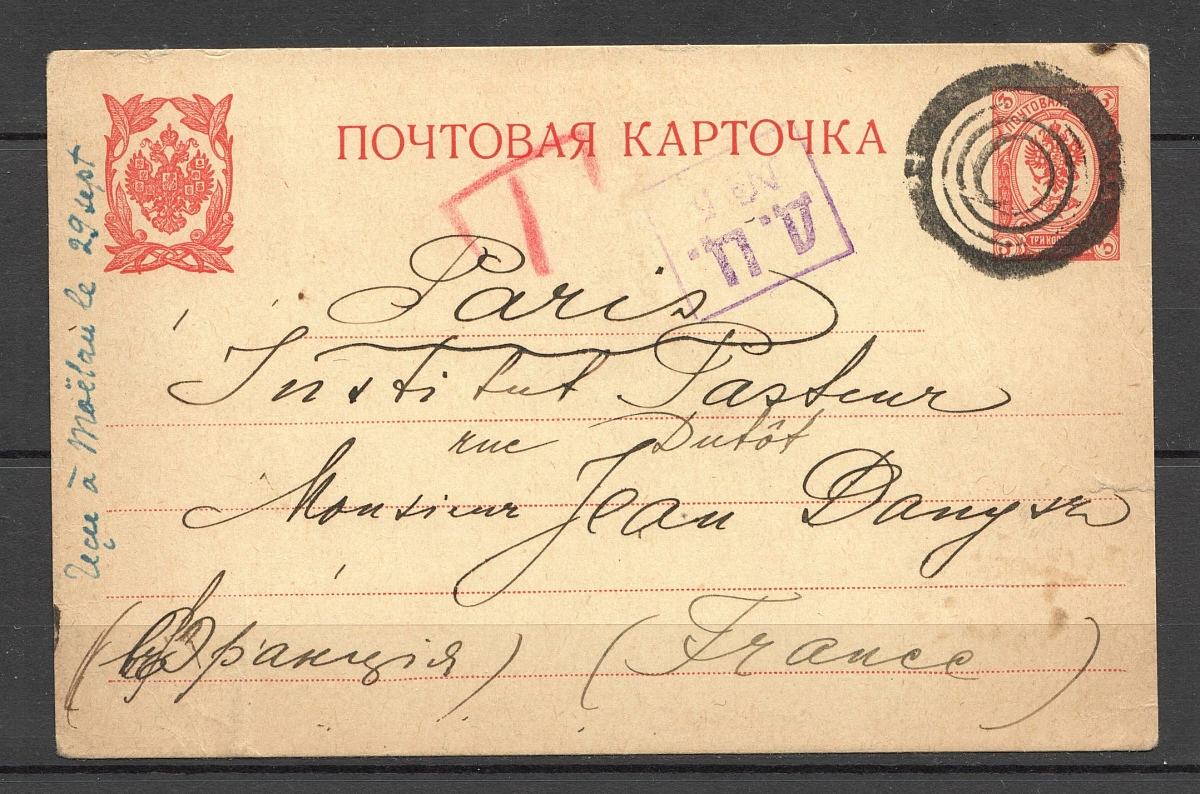 ПОЧТОВАЯ КАРТОЧКА
3 3
ПОЧТОВАЯ
ТРИ КОП
3 3
Т
Paris
Institut Pasteur
rue Dutôt
Monsieur Jean Danysz
(Франція) (France)
reçu à Moëlan le 29 sept